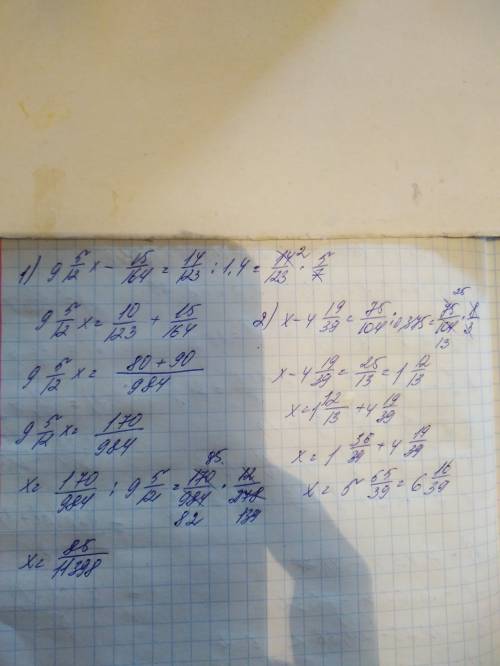 1) 9 5/12 x - 15/164 = 14/123 : 1,4 = 14²/123 · 5/7
9 5/12 x = 10/123 + 15/164
9 5/12 x = (80+90)/984
9 5/12 x = 170/984
x = 170/984 : 9 5/12 = 170/984 · 12/278
85
82 139
x = 85/11398
2) x - 4 19/39 = 75/104 : 0,375 = 75/104 · 8/3
25
13
x - 4 19/39 = 25/13 = 1 12/13
x = 1 12/13 + 4 19/39
x = 1 36/39 + 4 19/39
x = 5 55/39 = 6 16/39